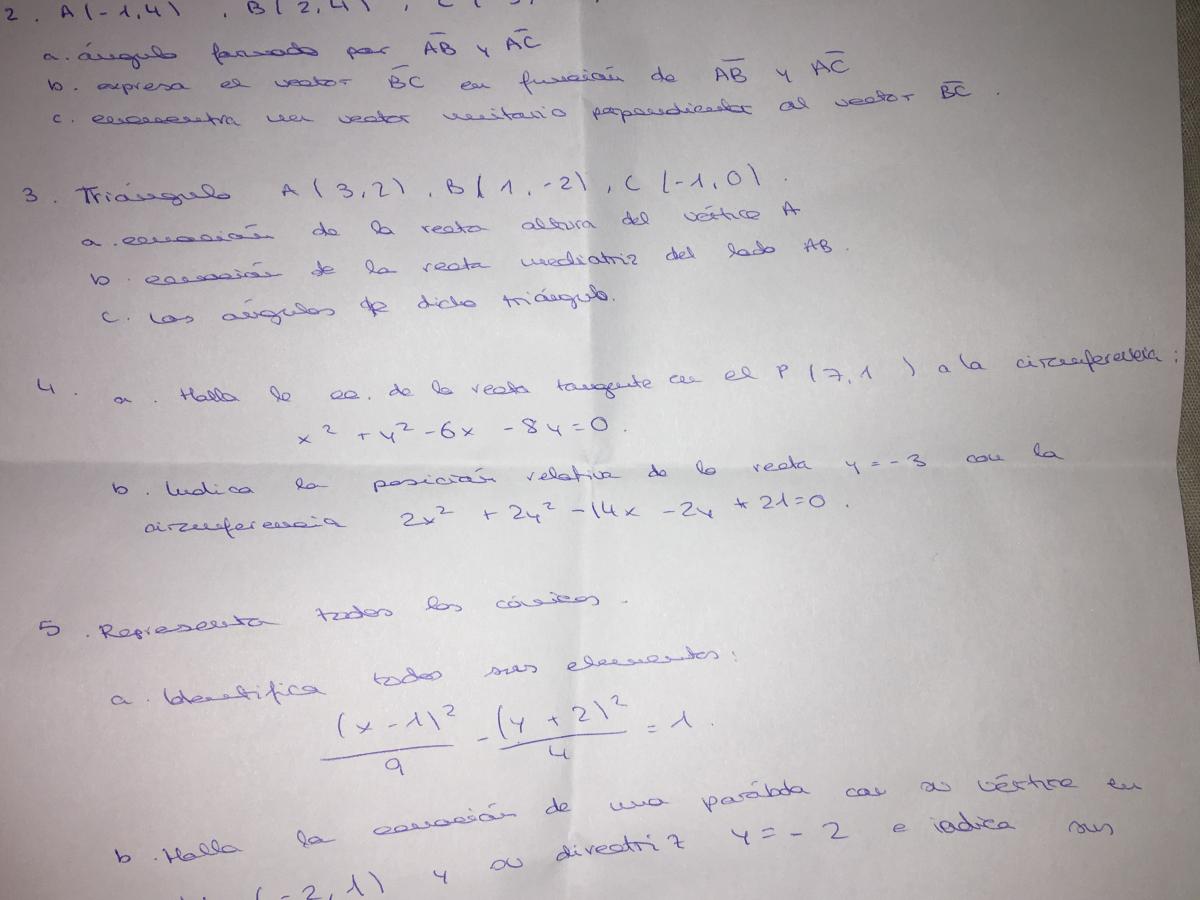 2. A(-1,4), B(2,4), C(
a. ángulo formado por AB y AC
b. expresa el vector BC en función de AB y AC
c. encuentra un vector unitario perpendicular al vector BC.
3. Triángulo A(3,2), B(1,-2), C(-1,0).
a. ecuación de la recta altura del vértice A
b. ecuación de la recta mediatriz del lado AB.
c. Los ángulos de dicho triángulo.
4. a. Halla la ec. de la recta tangente en el P(7,1) a la circunferencia:
x² + y² - 6x - 8y = 0.
b. Indica la posición relativa de la recta y = -3 con la
circunferencia 2x² + 2y² - 14x - 2y + 21 = 0.
5. Representa todas las cónicas.
a. Identifica todos sus elementos:
(x - 1)²/9 - (y + 2)²/4 = 1.
b. Halla la ecuación de una parábola con su vértice en
(-2,1) y su directriz y = -2 e indica sus